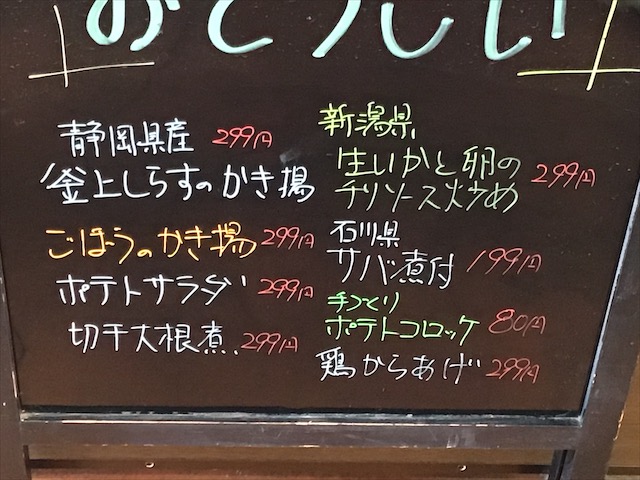 おとうしい
静岡県産 299円
釜上しらすのかき揚
ごぼうのかき揚 299円
ポテトサラダ 299円
切干大根煮 299円
新潟県
生いかと卵の
チリソース炒め 299円
石川県
サバ煮付 199円
手づくり
ポテトコロッケ 80円
鶏からあげ 299円